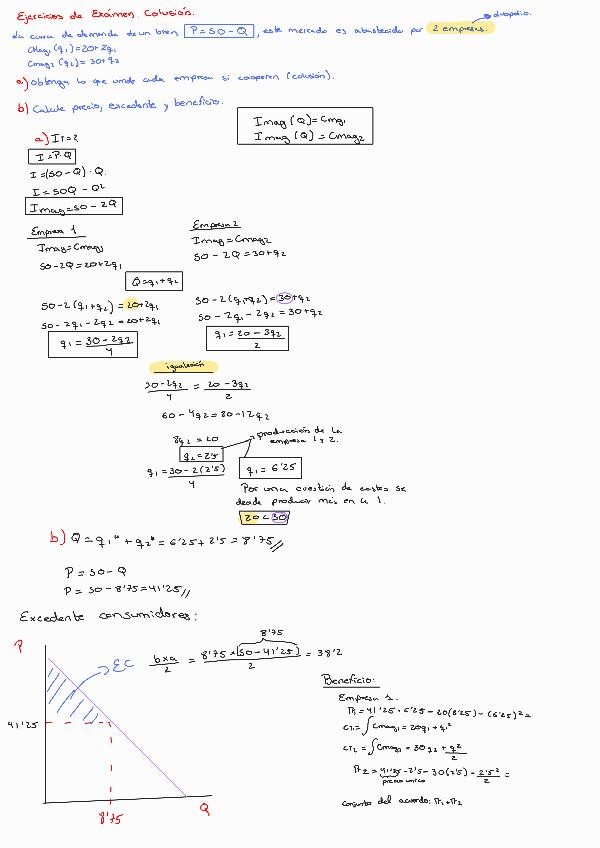 Ejercicios de Exámen. Colusión.
duopolio.
La curva de demanda de un bien P=50-Q, este mercado es abastecido por 2 empresas.
CMag1(q1)=20+2q1
Cmag2(q2)=30+q2
a) Obtenga lo que vende cada empresa si cooperan (colusión).
b) Calcule precio, excedente y beneficio.
Imag(Q)=Cmg1
Imag(Q)=Cmag2
a) IT=?
I=P·Q
I=(50-Q)·Q.
I=50Q-Q²
Imag=50-2Q
Empresa 1
Imag=Cmag1
50-2Q=20+2q1
Empresa 2
Imag=Cmag2
50-2Q=30+q2
Q=q1+q2
50-2(q1+q2)=20+2q1
50-2q1-2q2=20+2q1
q1=30-2q2
4
50-2(q1+q2)=30+q2
50-2q1-2q2=30+q2
q1=20-3q2
2
igualación
30-2q2 = 20-3q2
4 2
60-4q2=80-12q2
8q2=20
q2=2'5
producción de la
empresa 1 y 2.
q1=30-2(2'5)
4
q1=6'25
Por una cuestión de costes se
desde producir más en la 1.
20<30
b) Q=q1*+q2*=6'25+2'5=8'75//
P=50-Q
P=50-8'75=41'25//
Excedente consumidores:
P
EC
41'25
8'75
Q
8'75
b×a = 8'75×[50-41'25] = 38'2
2 2
Beneficio:
Empresa 1.
π1=41'25·6'25-20(6'25)-(6'25)²=
CT1=∫Cmag1=20q1+q1²
CT2=∫Cmag2=30q2+q2²
2
π2=41'25·2'5-30(2'5)-2'5²=
2
precio único
conjunto del acuerdo: π1+π2